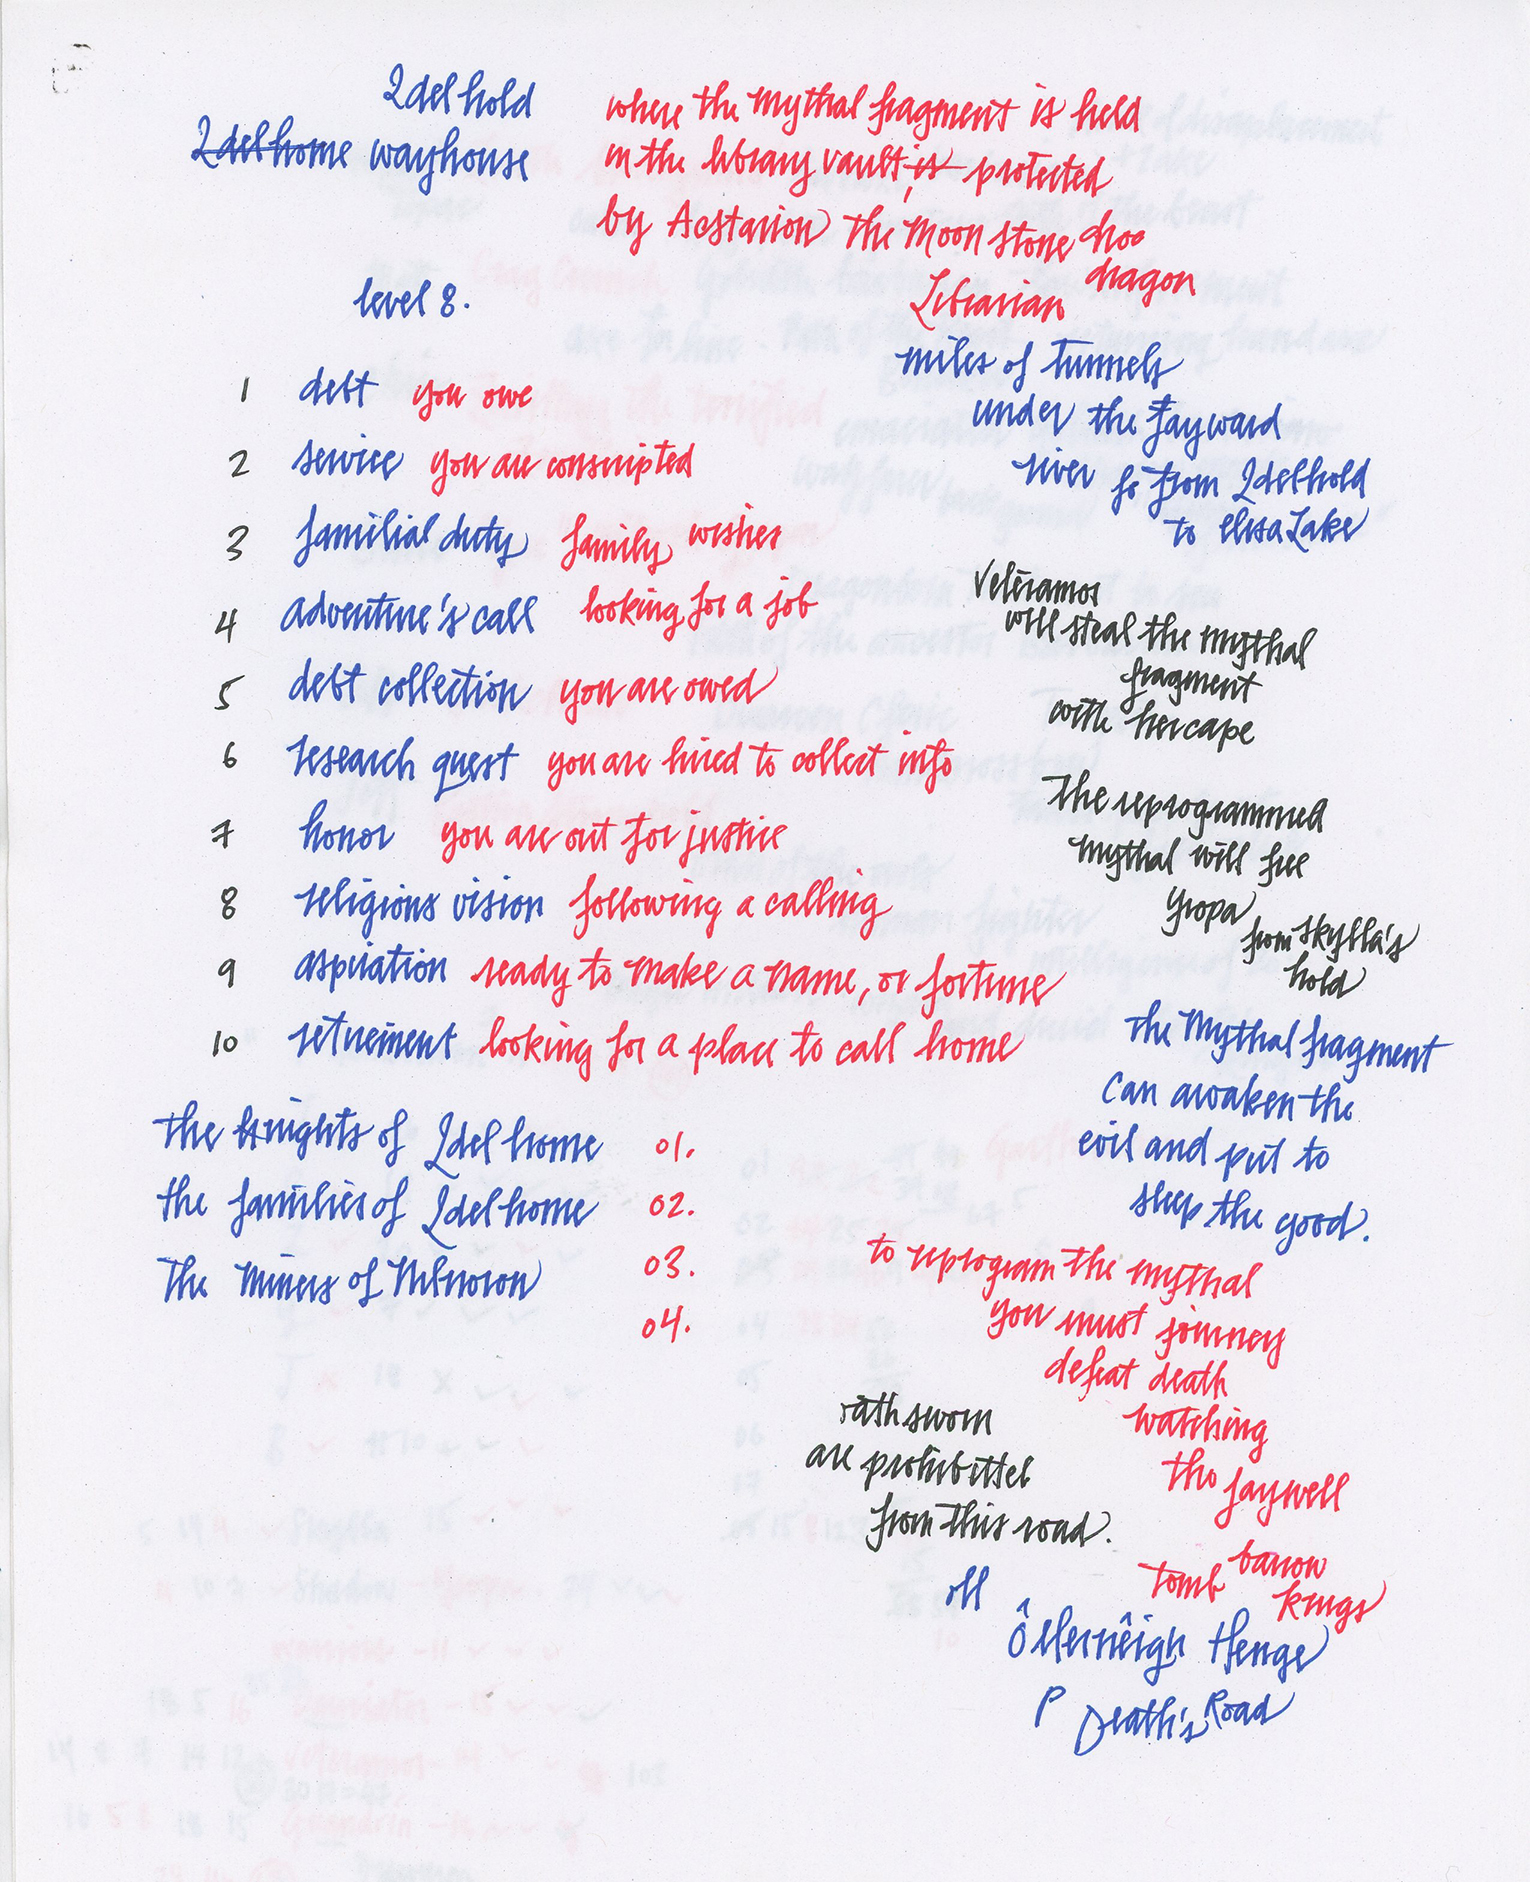 Idelhold
Idelhome wayhouse
where the mythal fragment is held
in the library vault, is protected
by Acstarion the Moon stone
dragon
Librarian
level 8.
miles of tunnels
under the Fayward
river go from Idelhold
to elisa Lake
1 debt you owe
2 service you are conscripted
3 familial duty family wishes
4 adventure's call looking for a job
5 debt collection you are owed
6 research quest you are hired to collect info
7 honor you are out for justice
8 religious vision following a calling
9 aspiration ready to make a name, or fortune
10 retirement looking for a place to call home
Veleramos
will steal the mythal
fragment
with her cape
the reprogrammed
mythal will free
Yropa
from Skylla's
hold
the Mythal fragment
can awaken the
evil and put to
sleep the good.
the knights of Idelhome 01.
the families of Idelhome 02.
the miners of 03.
04.
to reprogram the mythal
you must journey
defeat death
watching
the faywell
tomb barrow
kings
oathsworn
are prohibitted
from this road.
Henge
P Death's Road